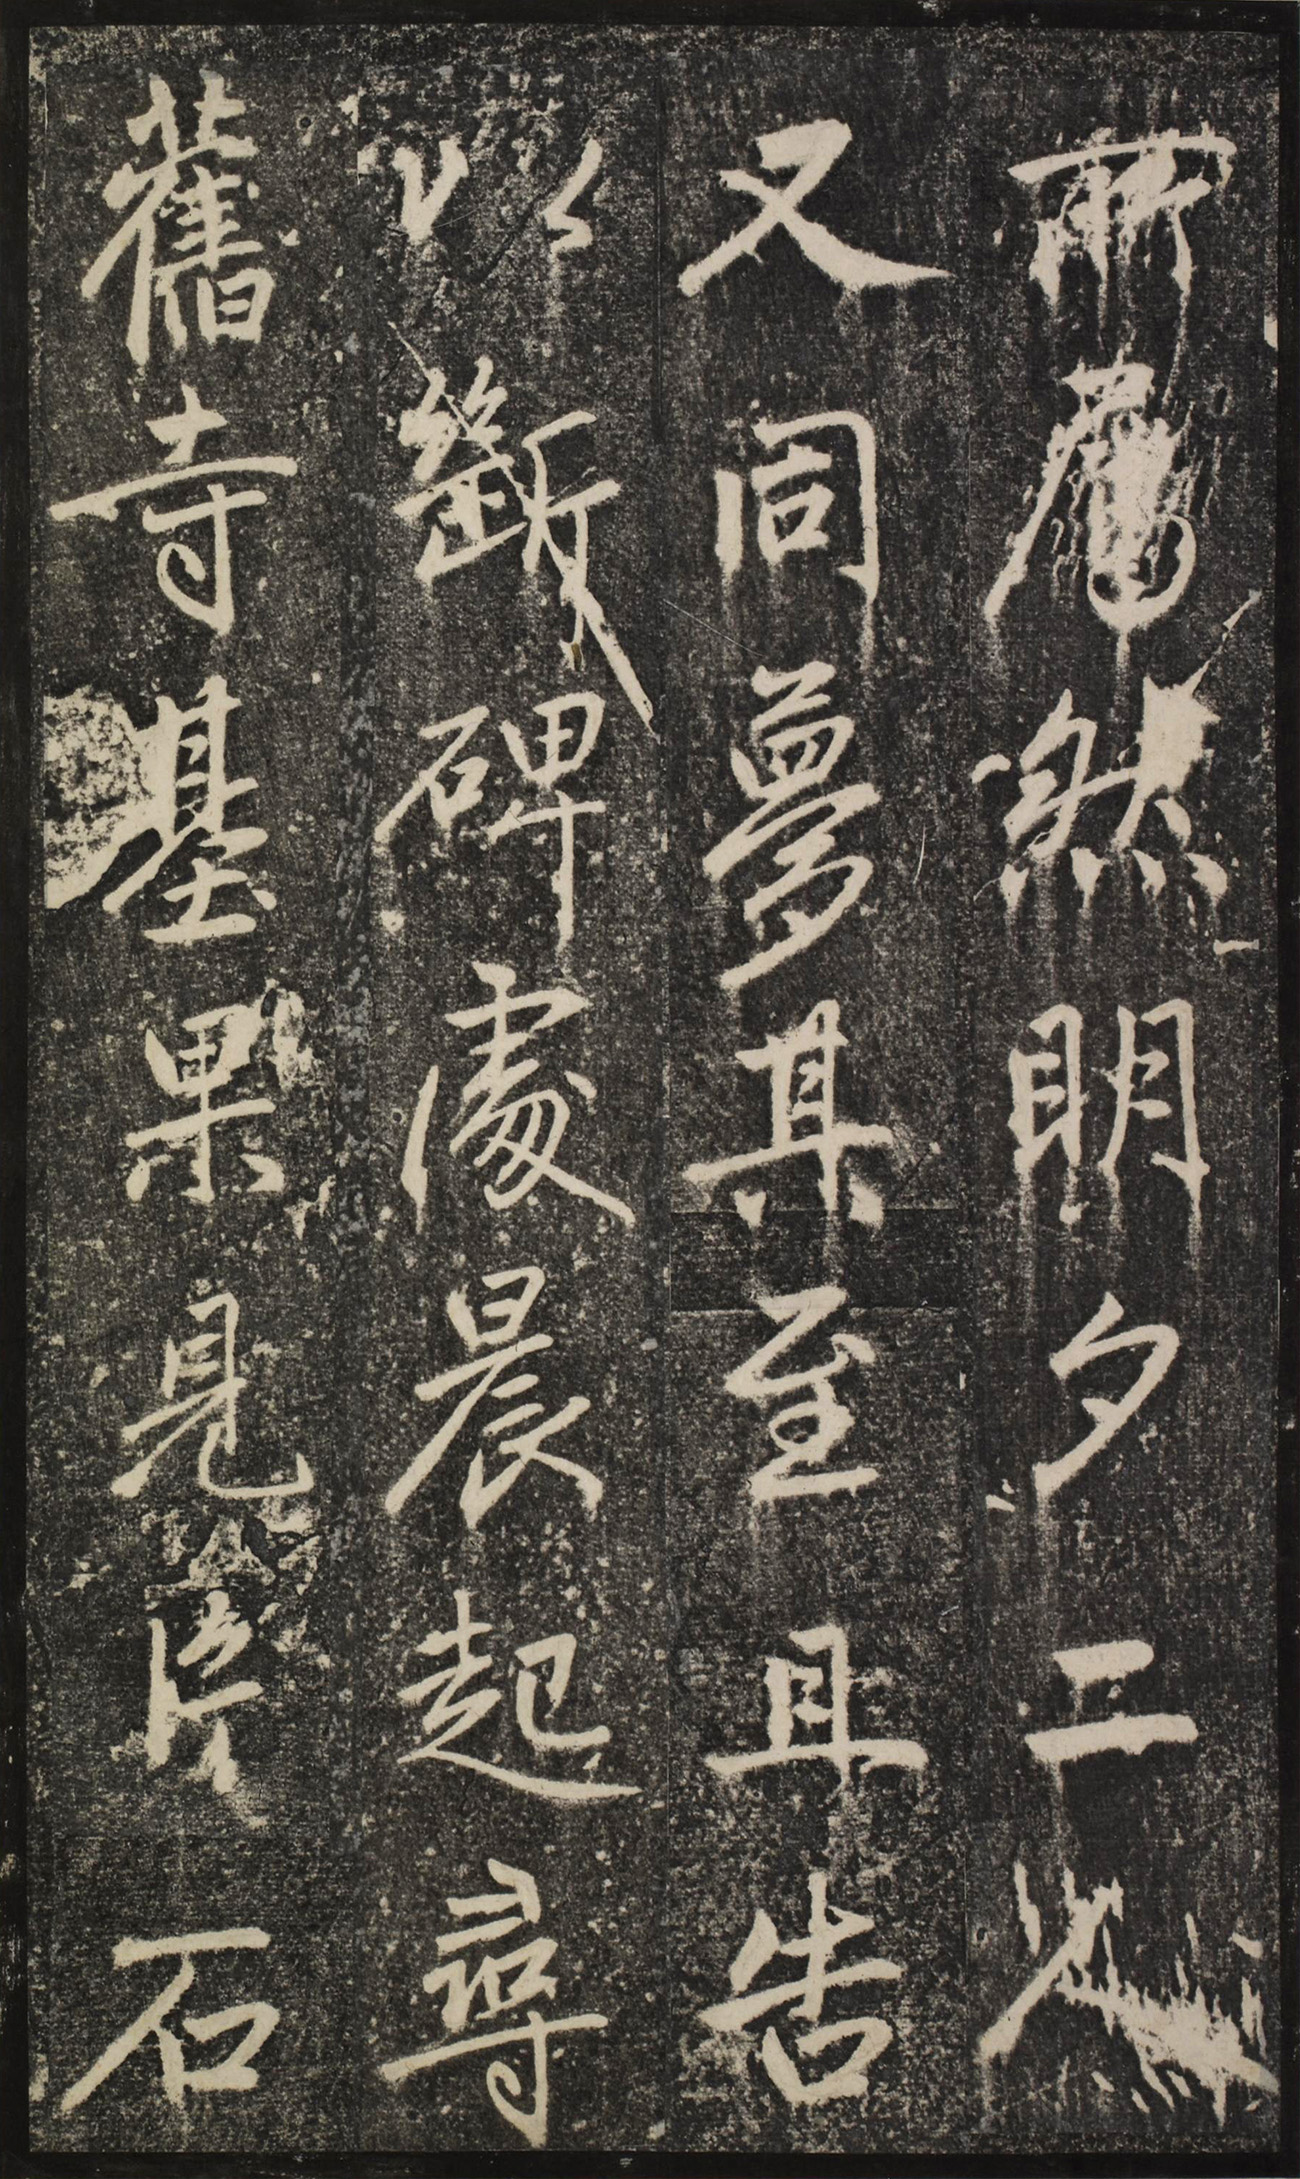 然明夕二
又同夢其至且告
以斷碑處晨起尋
舊寺基果見片石